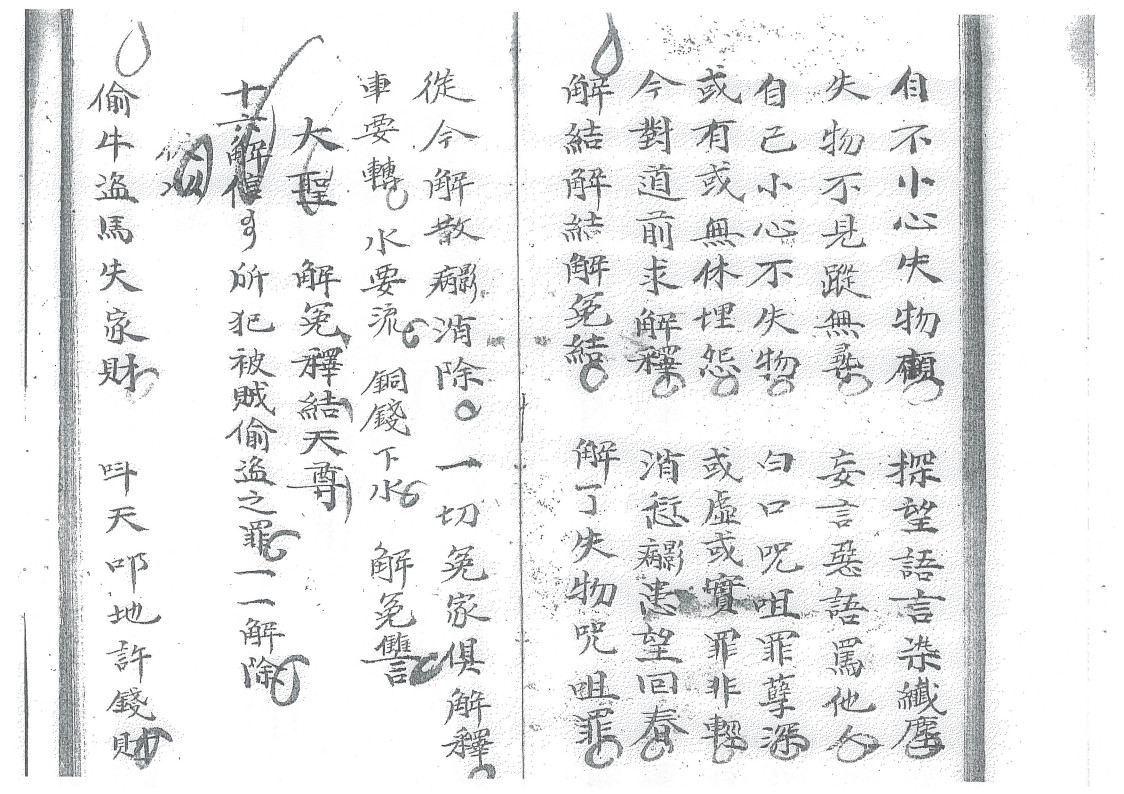 自不小心失物顧 探望語言染纖塵
失物不見蹤無尋 妄言惡語罵他人
自己小心不失物 白口咒咀罪孽深
或有或無休埋怨 或虛或實罪非輕
今對道前求解釋 消愆患望回春
解結解結解冤結 解了失物咒咀罪
從今解散消除 一切冤家俱解釋
車要轉 水要流 銅錢下水 解冤讐
大聖 解冤釋結天尊
十六解信 所犯被賊偷盗之罪一一解除
偷牛盗馬失家財 呌天叩地許錢財